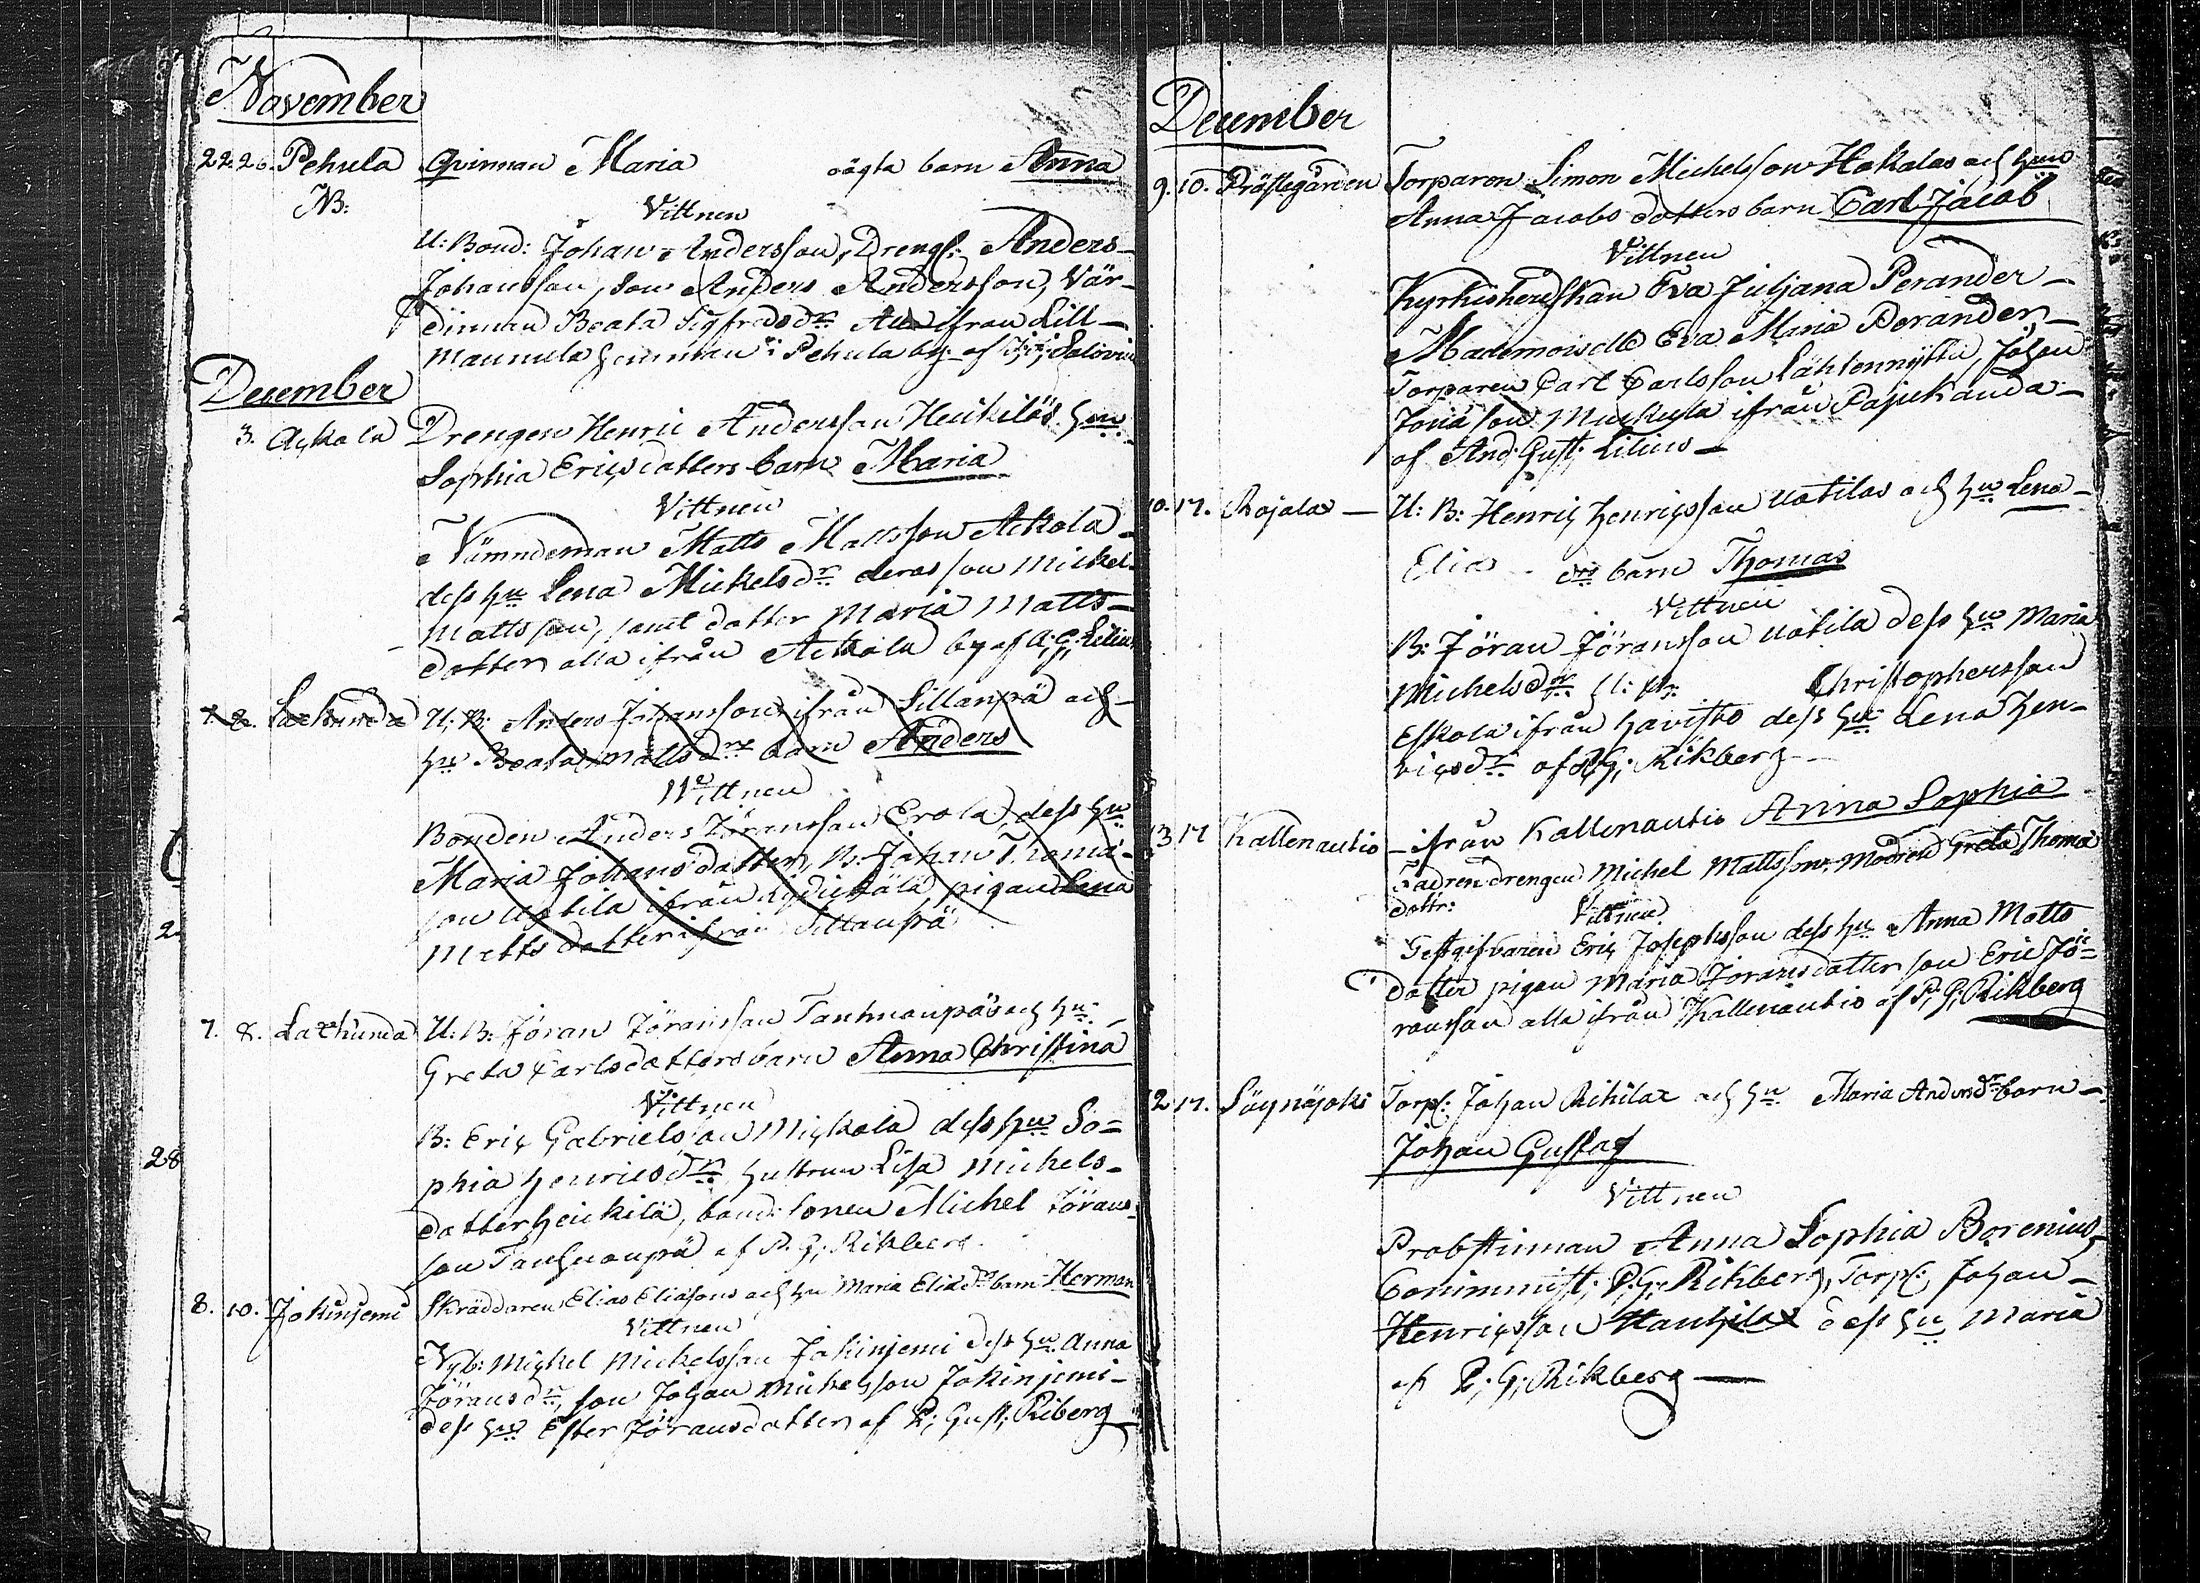 November
22. 26. Pehula Qvinnan Maria oägta barn Anna
NB:
Vittnen
U: Bond: Johan Andersson, Drengs: Anders
Johansson, son Anders Andersson, Vär-
dinnan Beata Sigfredsdr Alla ifrån Lill-
Maunula hemman i Pehula by
December
3. Ackola Drengen Henric Andersson Heikiläs hu
Sophia Ericsdatters barn Maria
Vittnen
Nämndeman Matts Mattsson Ackola
dess hu Lena Mickelsdr deras son Mickel
Mattsson, samt dotter Maria Matts-
dotter alla ifrån Ackola by af A: G: Lilius
7. 8. U: B: Anders Johansson ifrån Sillanpä och
hu Beata Mattsdrs barn Anders
Vittnen
Bonden Anders Jöransson Erola dess hu
Maria Johansdatter, B: Johan Thoma-
son Uotila ifrån pigan Lena
Mattsdatter ifrån Sillanpä
7. 8. Lackunda U: B: Jöran Jöransson Tanhuanpäs och hu
Greta Carlsdatters barn Anna Christina
Vittnen
B: Eriç Gabrielsson Mickola dess hu So-
phia Henricsdr hustrun Lisa Michels-
datter Heickilä, bond: sonen Michel Jörans-
son Tanhuanpä af P. G: Rikberg
8. 10. Jokinjemi Skräddaren Elias Eliasons och hu Maria Eliaedr barn Herman
Vittnen
Nyb: Mickel Mickelsson Jokinjemi dess hu Anna
Jöransdr, son Johan Michelsson Jokinjemi
dess hu Ester Jöransdatter af P: Gust: Riberg
December
9. 10. Prästegården Torparen Simon Michelsson Hakalas och hu
Anna Jacobs datters barn Carl Jacob
Vittnen
Kyrkioherdskan Eva Juljana Perander
Mademoiselle Eva Maria Perander
Torparen Carl Carlsson Lähtennytty, Johan
Jonason ifrån Pajukanda
af And: Gust: Lilius
10. 17. Rojala U: B: Henriç Henriçsson Uotilas och hu Lena
Elias drs barn Thomas
Vittnen
B: Jöran Jöransson Uotila dess hu Maria
Michelsdr Christophersson
Eskola ifrån Havisto dess hu Lena Hen-
riçsdr af P: G: Rikberg
13. 17 Kallenautio ifrån Kallenautio Anna Sophia
Fadren drengen Michel Mattsson, Modren Greta Thoma
dottr:
Vittnen
Gestgifvaren Eriç Josephsson dess hu Anna Matts
datter pigan Maria Jöransdatter son Eric Jö-
ransson alla ifrån Kallenautio af P: G: Rikberg
12 17. Säynäjoki Torp: Johan Rihilax och hu Maria Andersdr barn
Johan Gustaf
Vittnen
Probstinnan Anna Sophia Borenius
Comminist: P: G: Rikberg, Torp: Johan
Henriçsson dess hu Maria
af P: G: Rikberg